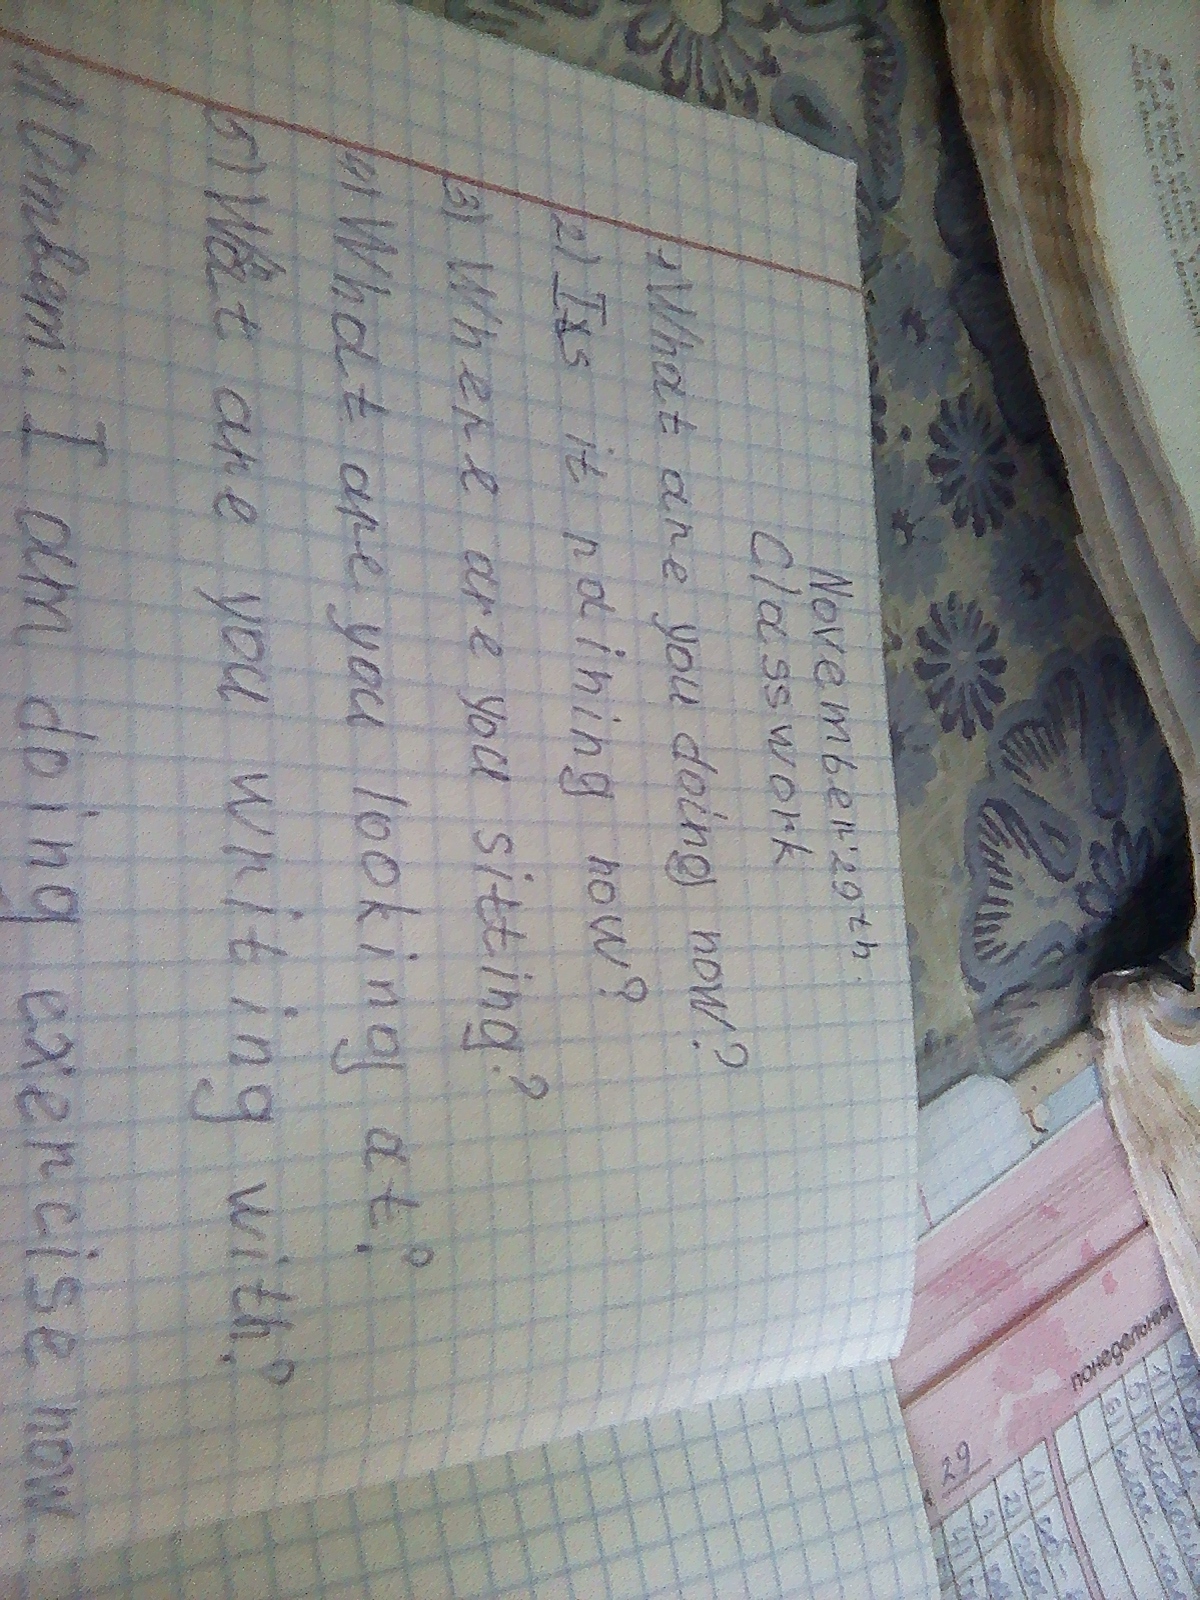 November 29th.
Classwork
1) What are you doing now?
2) Is it raining now?
3) Where are you sitting?
4) What are you looking at?
5) What are you writing with?
1 Ответ: I am doing exercise now.
понедельник
29